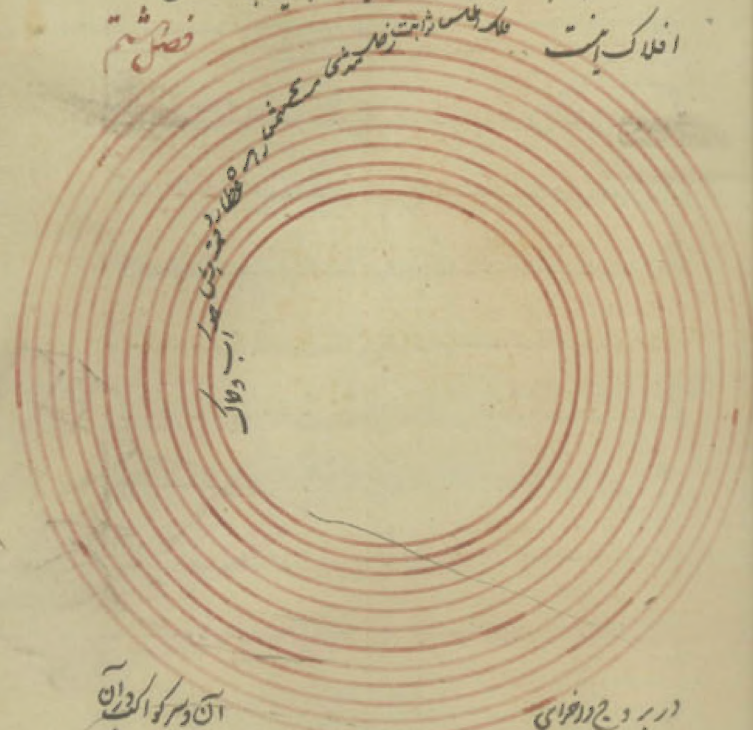 افلاک اینست
فصل هشتم
فلک اطلس ثوابت زحل مشتری مریخ شمس زهره عطارد قمر اتش هوا اب و خاک
در بروج و اجزای
آن و سر کواکب در آن